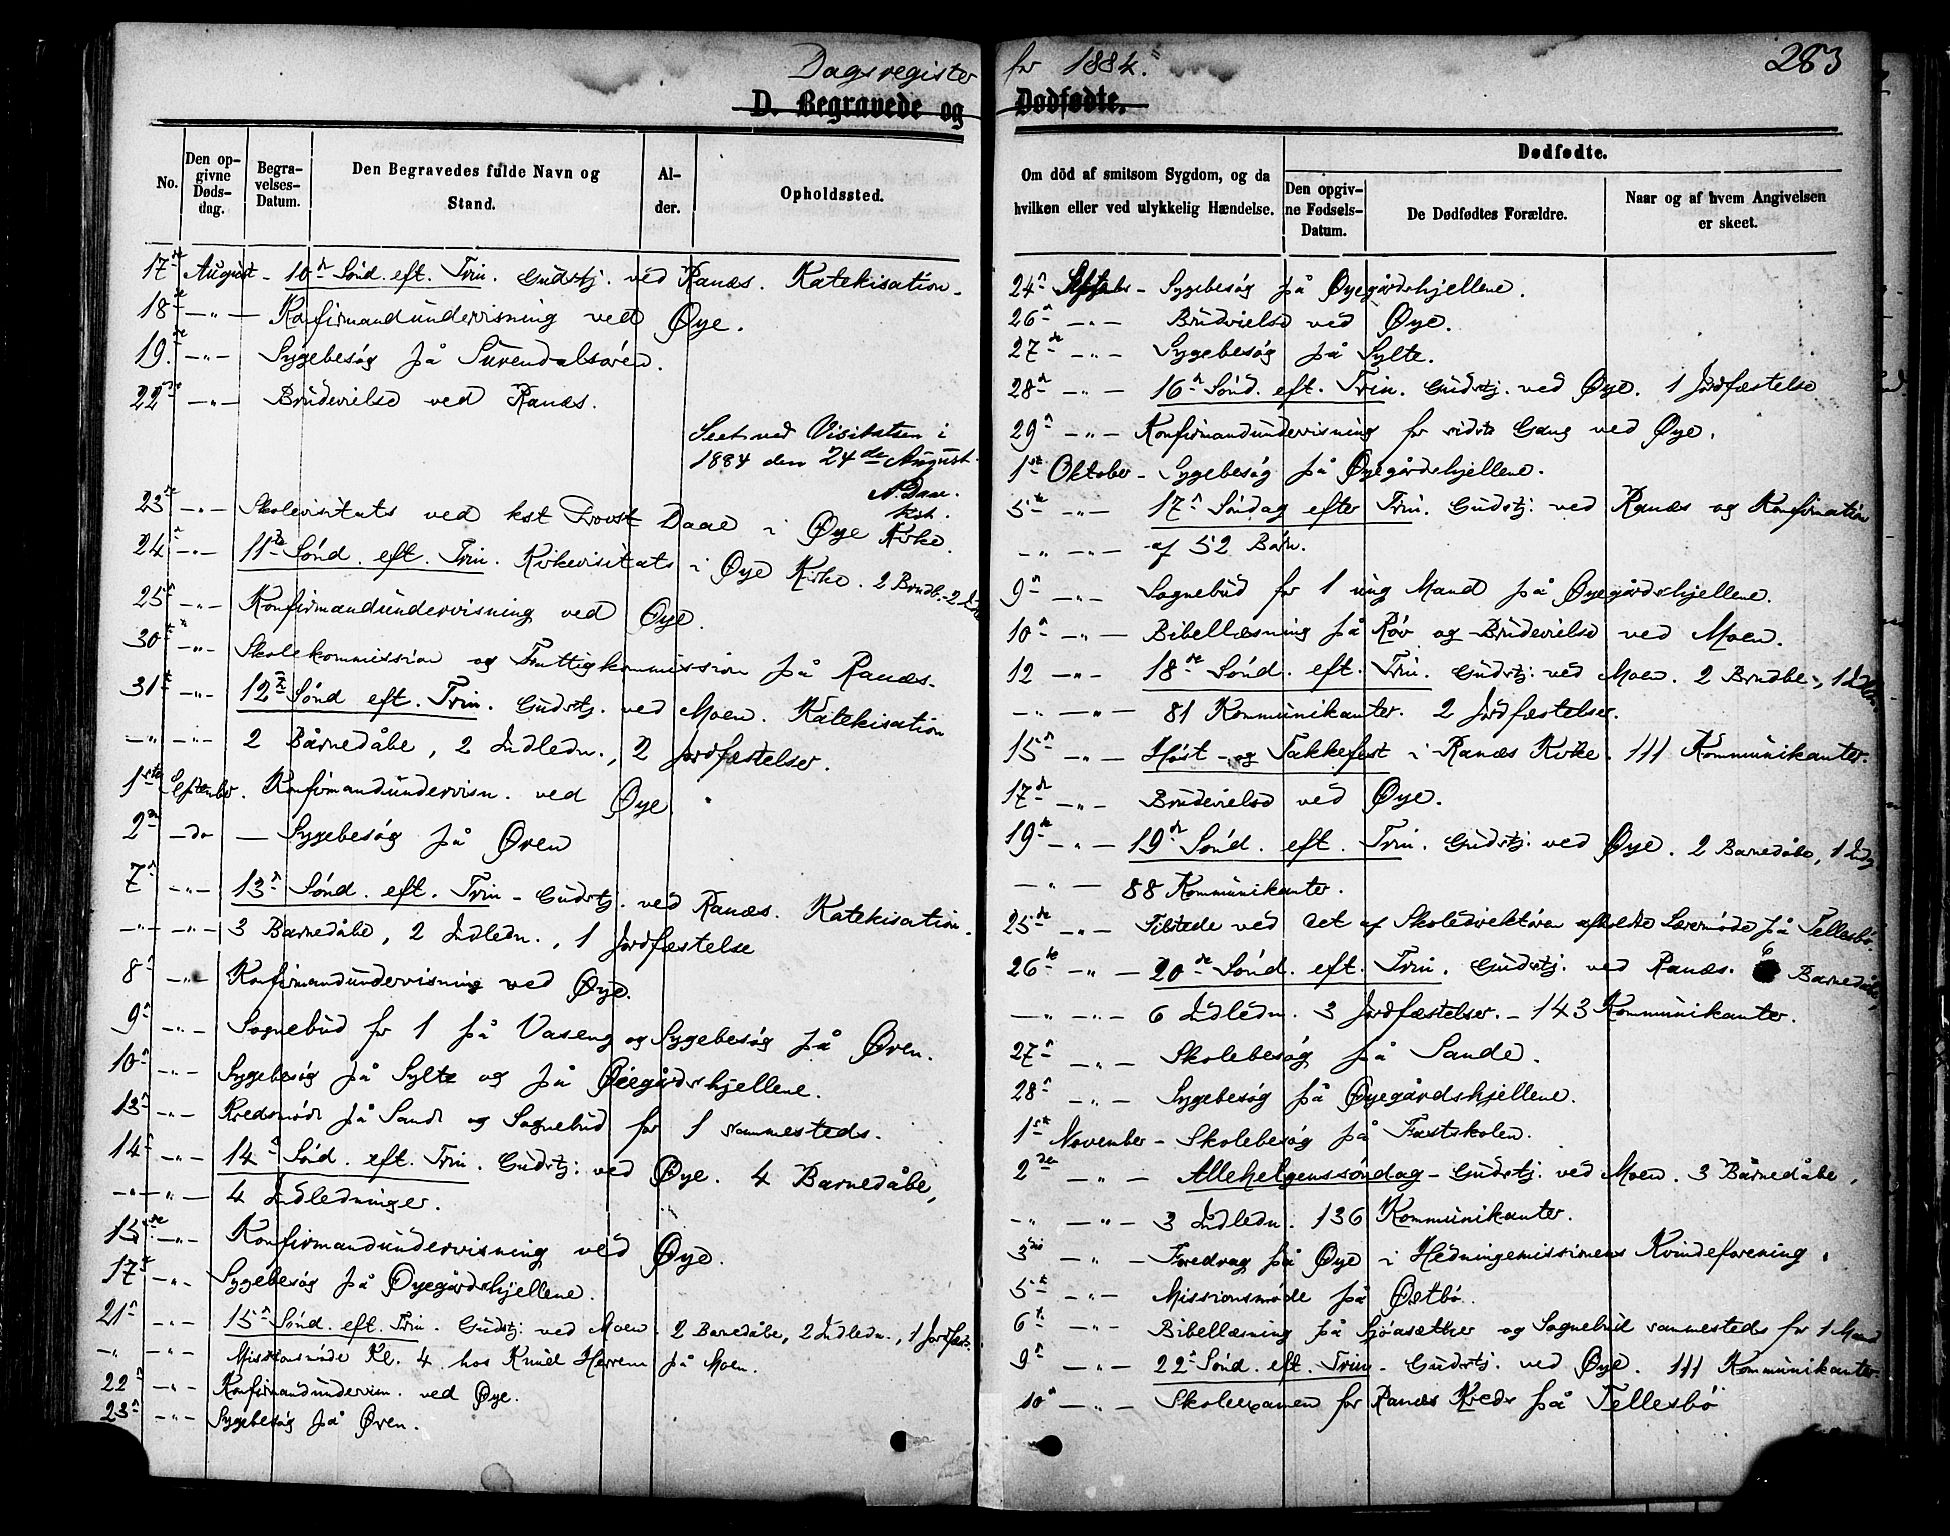 Dagsregister for 1884.
283
D. Begravede og Dødfødte.
No.
Den opgivne Dødsdag.
Begravelses-Datum.
Den Begravedes fulde Navn og Stand.
Alder.
Opholdssted.
17de August - 10de Sønd. eft. Trin. Gudstj. ved Ranæs. Katekisation.
18de -"- Konfirmandundervisning ved Øye.
19de -"- Sygebesøg på Surendalsøren.
22de -"- Brudevielse ved Ranæs.
Seet ved Visitatsen i
1884 den 24de August.
N. Daae.
kst.
23de -"- Skolevisitats ved kst Provst Daae i Øye Kirke.
24de -"- 11te Sønd. eft. Trin. Kirkevisitats i Øye Kirke. 2 Brndb. - 2 Indl.
25de -"- Konfirmandundervisning ved Øye.
30te -"- Skolekommission og Fattigkommission på Ranæs.
31te -"- 12te Sønd eft. Trin. Gudstj. ved Moen. Katekisation
-"- -"- 2 Barnedåbe, 2 Indledn., 2 Jordfæstelser.
1ste Septenber. Konfirmandundervisn. ved Øye.
2den -do- Sygebesøg på Øren
7de -"- 13de Sønd. eft. Trin - Gudstj. ved Ranæs. Katekisation.
-"- -"- 3 Barnedåbe, 2 Indledn., 1 Jordfæstelse
8de -"- Konfirmandundervisning ved Øye.
9de -"- Sognebud for 1 på Vaseng og Sygebesøg på Øren.
10de -"- Sygebesøg på Sylte og på Øiegårdshjellene.
13de -"- Kredsmøde på Sande og Sognebud for 1 sammesteds.
14de -"- 14de Sønd. eft. Trin. Gudstj. ved Øye. 4 Barnedåbe,
-"- -"- 4 Indledninger.
15de -"- Konfirmandundervisning ved Øye.
17de -"- Sygebesøg på Øyegårdshjellene.
21de -"- 15de Sønd. eft. Trin. Gudstj. ved Moen. 2 Barnedåbe, 2 Indledn., 1 Jordfæst.
-"- -"- Missionsmøde Kl. 4 hos Knud Herrem på Moen.
22de -"- Konfirmandundervisn. ved Øye.
23de -"- Sygebesøg på Øren.
Om död af smitsom Sygdom, og da hvilken eller ved ulykkelig Hændelse.
Dødfødte.
Den opgivne Fødsels-Datum.
De Dødfødtes Forældre.
Naar og af hvem Angivelsen er skeet.
24de Septbr - Sygebesøg på Øyegårdshjellene.
26de -"- Brudvielse ved Øye.
27de -"- Sygebesøg på Sylte.
28de -"- 16de Sønd. eft. Trin. Gudstj. ved Øye. 1 Jordfæstelse
29de -"- Konfirmandundervisning for sidste Gang ved Øye.
1ste Oktober - Sygebesøg på Øyegårdshjellene.
5te -"- 17de Søndag efter Trin. Gudstj. ved Ranæs og Konfirmation
-"- -"- af 52 Børn.
9de -"- Sognebud for 1 ung Mand på Øyegårdshjellene.
10de -"- Bibellæsning på Røv og Brudevielse ved Moen.
12 -"- 18de Sønd. eft. Trin. Gudstj. ved Moen. 2 Brndbe -, 1 Indl.
-"- -"- 81 Kommunikanter. 2 Jordfæstelser.
15de -"- Høst- og Takkefest i Ranæs Kirke. 111 Kommunikanter.
17de -"- Brudevielse ved Øye.
19de -"- 19de Sønd. eft. Trin. Gudstj. ved Øye. 2 Barnedåbe, 1 Indl.
-"- 88 Kommunikanter.
25de -"- Tilstede ved det af Skoledirektøren afholdte Læremøde på Tellesbø.
26de -"- 20de Sønd. eft. Trin. Gudstj. ved Ranæs. 6 Barnedåbe,
-"- -"- 6 Indledn. 3 Jordfæstelser. - 143 Kommunikanter.
27de -"- Skolebesøg på Sande.
28de -"- Sygebesøg på Øyegårdshjellene.
1ste November - Skolebesøg på Fastskolen.
2den -"- Allehelgenssøndag - Gudstj. ved Moen. 3 Barnedåbe,
-"- -"- 3 Indledn. 136 Kommunikanter.
3die -"- Foredrag på Øye i Hedningemissionens Kvindeforening.
5te -"- Missionsmøde på Østbø.
6te -"- Bibellæsning på Sjöasæther og Sognebud sammesteds for 1 Mand
9de -"- 22de Sønd. eft. Trin. Gudstj. ved Øye. 111 Kommunikanter.
10de Skoleexamen for Ranæs Kreds på Tellesbø